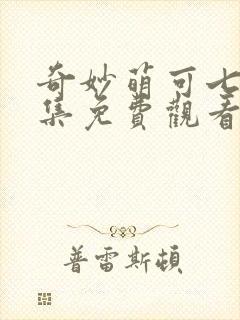 奇妙萌可七
集免費觀看
普雷斯頓